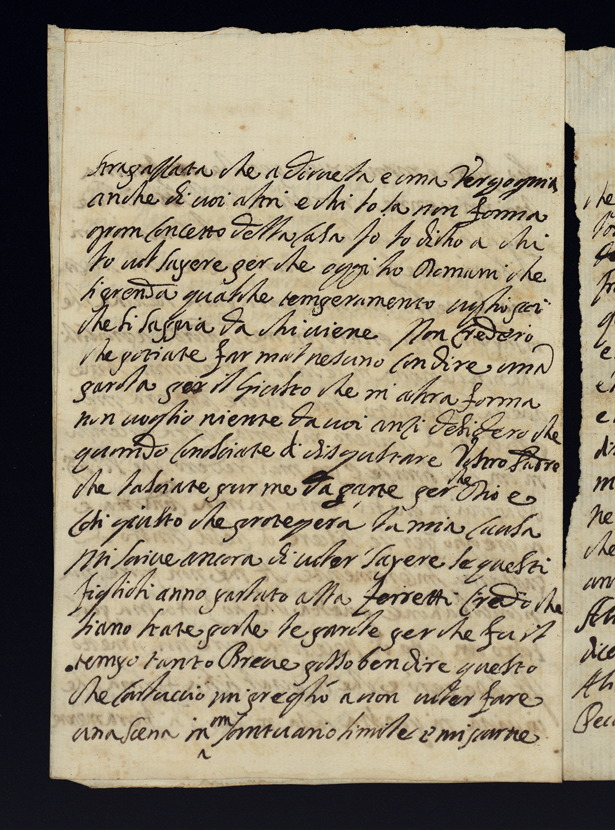 strapassata che a dirvela e una Vergognia
anche di voi altri e chi lo sa non forma
gran Concetto della casa Io lo dicho a chi
lo vol sapere per che oggi ho Domani che
si prenda qualche temperamento voglio poi
che si sappia da chi viene Non Crederei
che potiate far mal nesuno Con dire una
parola per il Giusto che in altra forma
non voglio niente da voi anzi desidero che
quando Conosciate di disgustare Vostro Padre
che lasciate pur me da parte per che Dio e
Cosi giusto che protegera la mia Causa
Mi scrive ancora di voler sapere se questi
figlioli anno parlato alla Ferretti Credo che
siano state poche le parole per che fu il
tempo tanto Breve posso ben dire questo
che Carluccio mi pregho a non voler fare
una scena in un santuario simile e mi parve